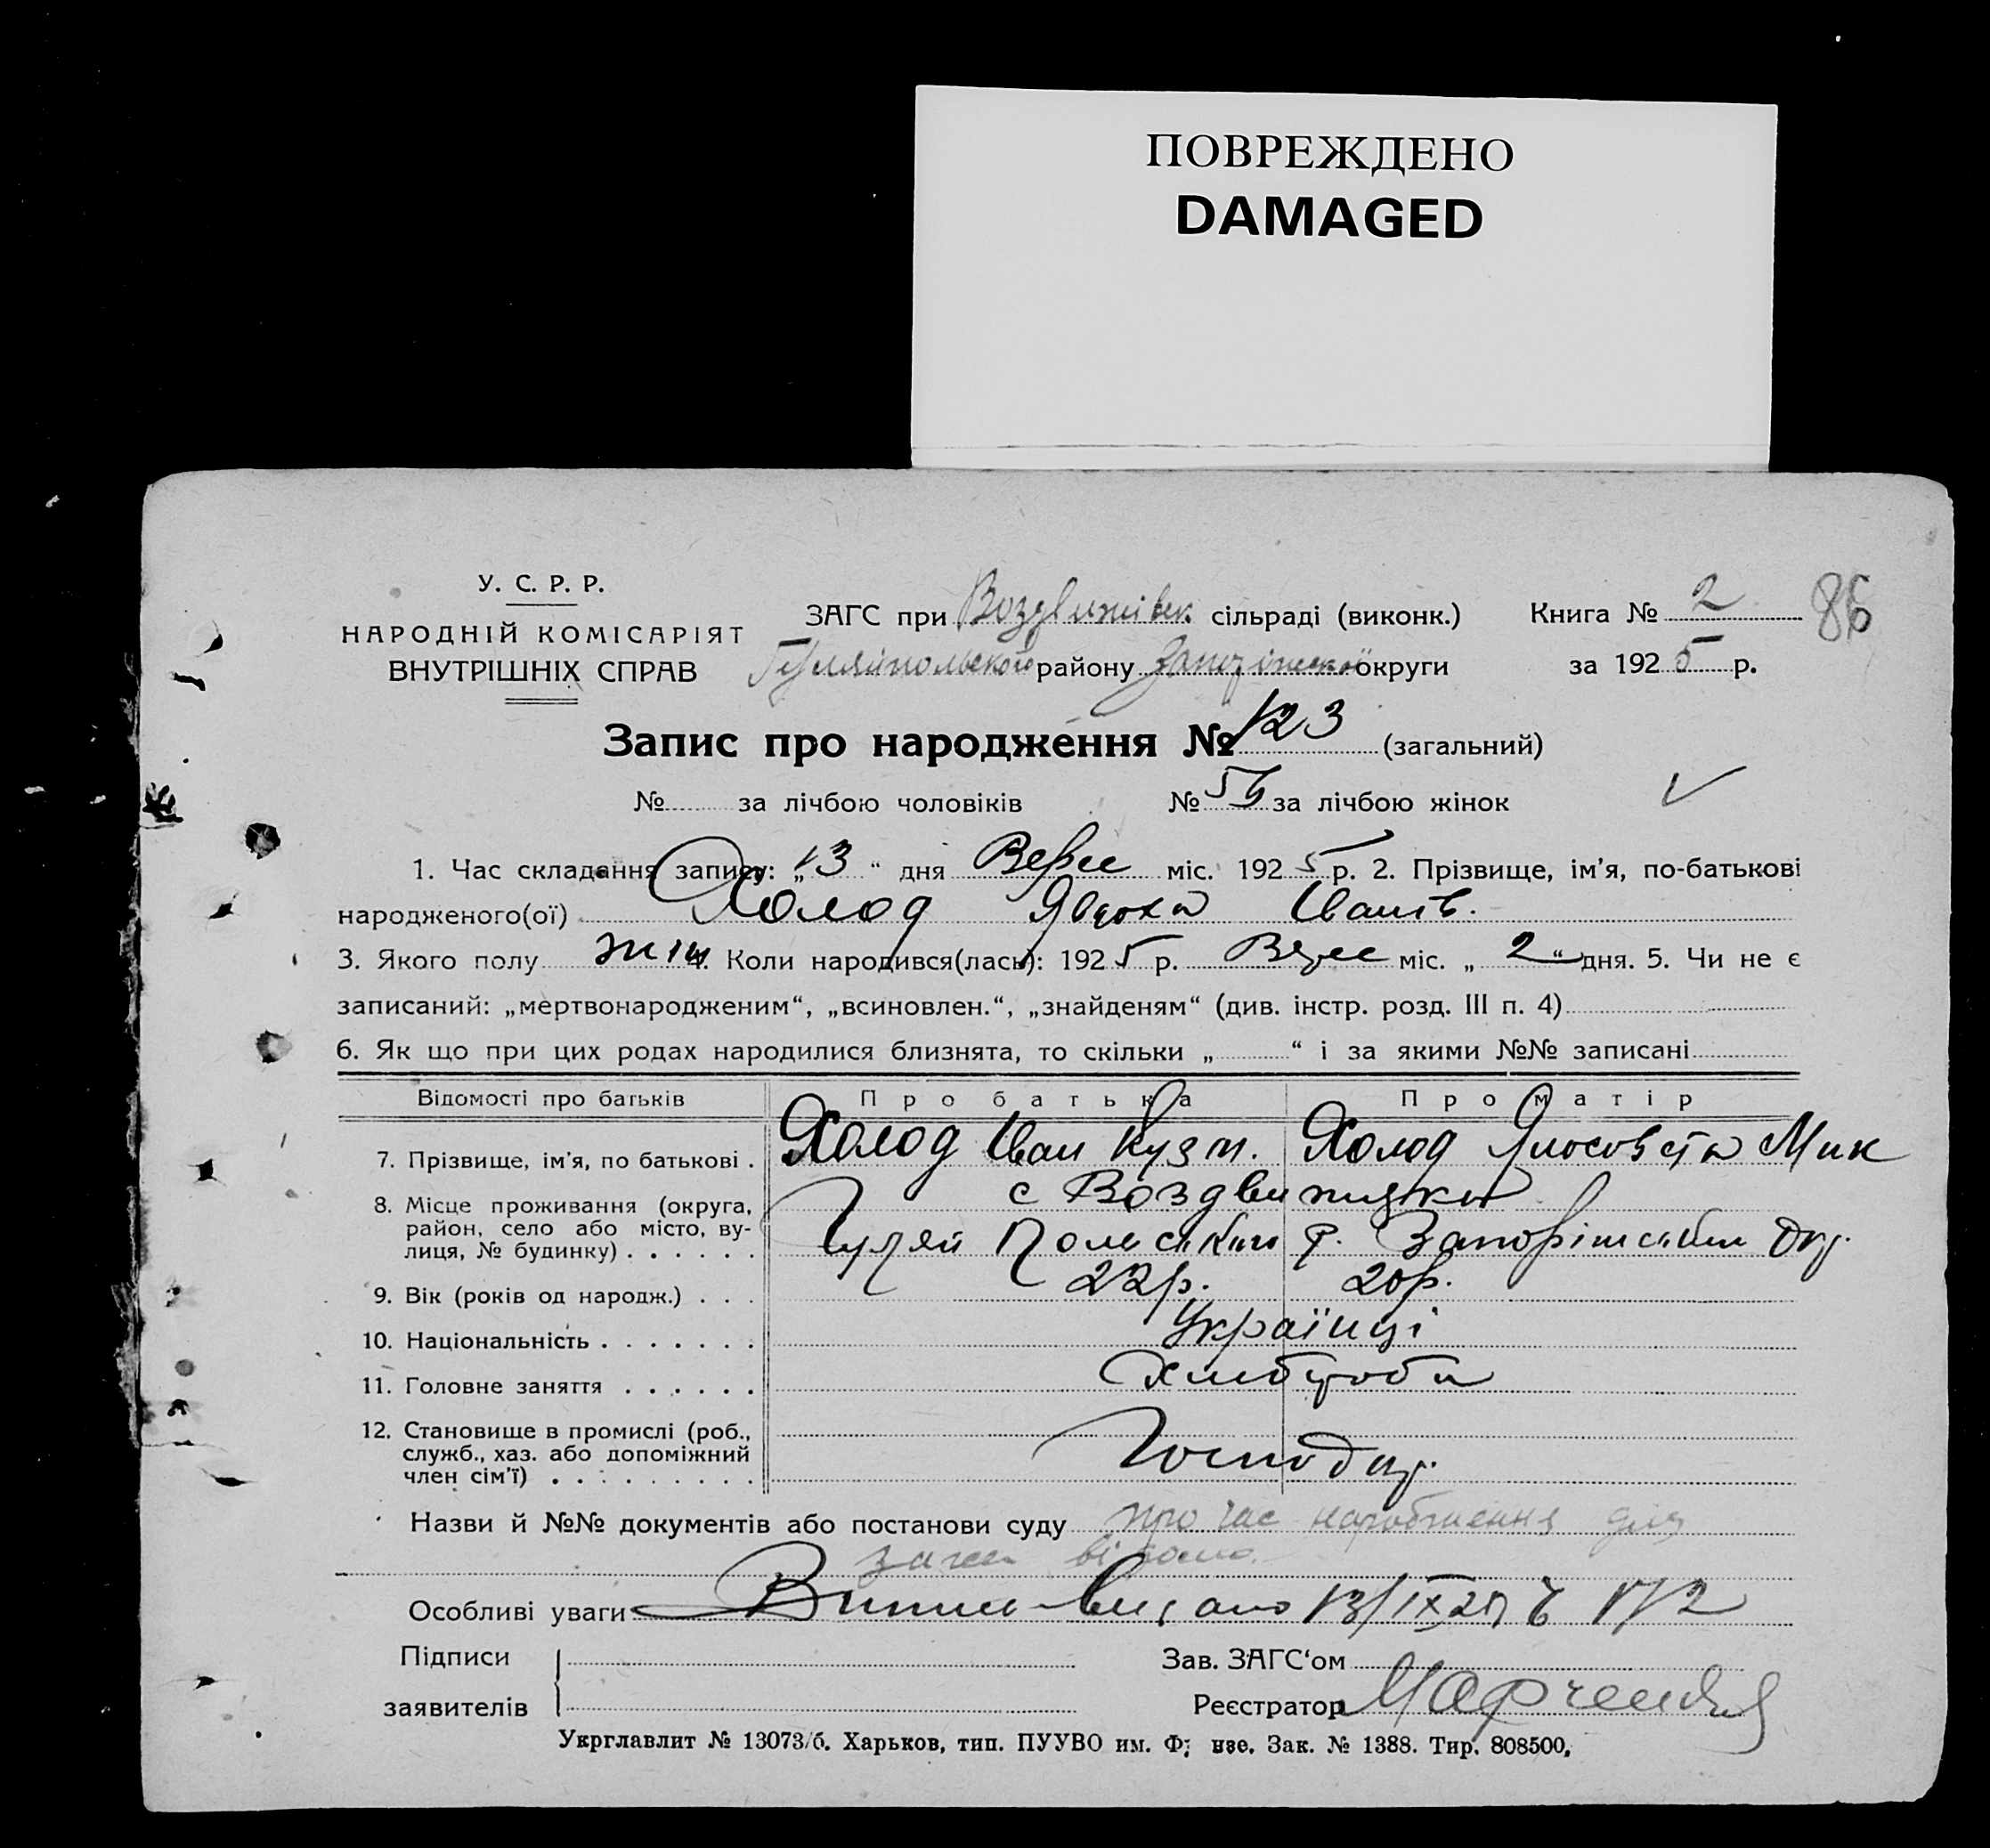 ПОВРЕЖДЕНО
DAMAGED
У. С. Р. Р.
НАРОДНІЙ КОМІСАРІЯТ
ВНУТРІШНІХ СПРАВ
ЗАГС при Воздвижівськ. сільраді (виконк.) Книга № 2 86
Гуляйпольского району Запоріжской округи за 1925 р.
Запис про народження № 123 (загальний)
№ за лічбою чоловіків № 56 за лічбою жінок
1. Час складання запису: „13“ дня Верес міс. 1925 р. 2. Прізвище, ім'я, по-батькові
народженого(ої) Холод Явдоха Іванів.
3. Якого полу жін 4. Коли народився(лась): 1925 р. Верес міс. „2“ дня. 5. Чи не є
записаний: „мертвонародженим“, „всиновлен.“, „знайденям“ (див. інстр. розд. III п. 4)
6. Як що при цих родах народилися близнята, то скільки „ “ і за якими №№ записані
Відомості про батьків Про батька Про матір
7. Прізвище, ім'я, по батькові . Холод Іван Кузм. Холод Мик
8. Місце проживання (округа, район, село або місто, вулиця, № будинку) . . . . . . с Воздвижияка
Гуляй Польського р. Запоріжської Окр.
9. Вік (років од народж.) . . . 22р. 20р.
10. Національність . . . . . . . Українці
11. Головне заняття . . . . . . Хлібороби
12. Становище в промислі (роб., служб., хаз. або допоміжний член сім'ї) . . . . . . . . . Господар.
Назви й №№ документів або постанови суду про час народження для
загса
Особливі уваги Випис видано 13/IX 25 р 172
Підписи
заявителів
Зав. ЗАГС'ом
Реєстратор Марченко
Укрглавлит № 13073/б. Харьков, тип. ПУУВО им. Фрунзе. Зак. № 1388. Тир. 808500.